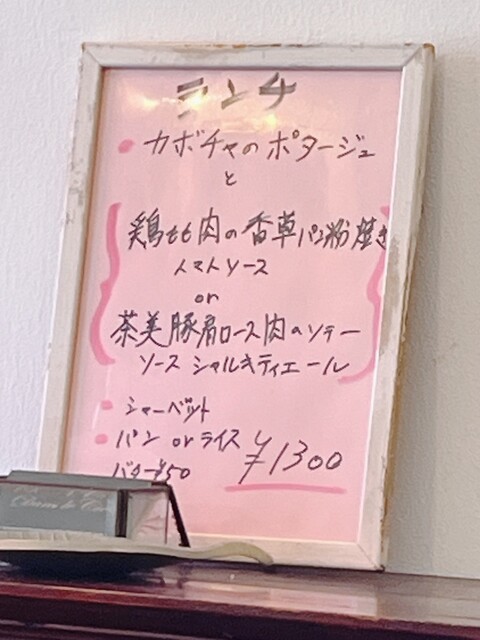 ランチ
・カボチャのポタージュ
と
鶏もも肉の香草パン粉焼き
トマトソース
or
茶美豚肩ロース肉のソテー
ソース シャルキティエール
・シャーベット
・パン or ライス
バター¥50
¥1300